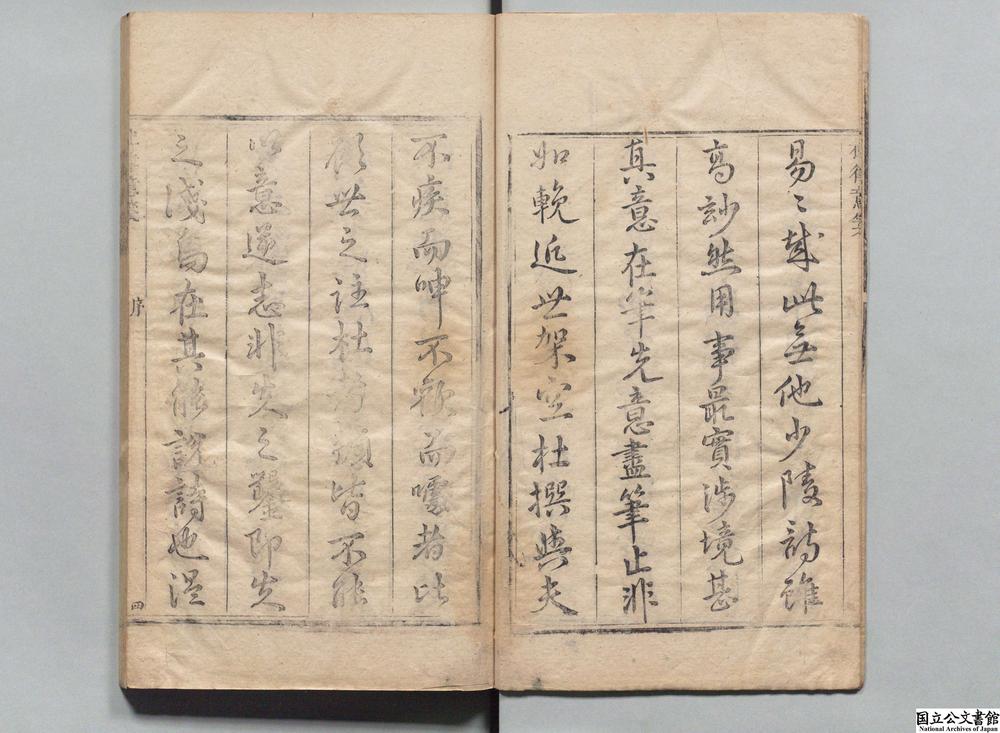 易〻哉此無他少陵詩雖
高妙然用事最實涉境甚
真意在筆先意盡筆止非
如輓近世架空杜撰與夫
不疾而呻不歡而噱者比
顧世之註杜者類皆不能
以意逆志非失之鑿即失
之淺烏在其能說詩也澀
序
四
国立公文書館
National Archives of Japan